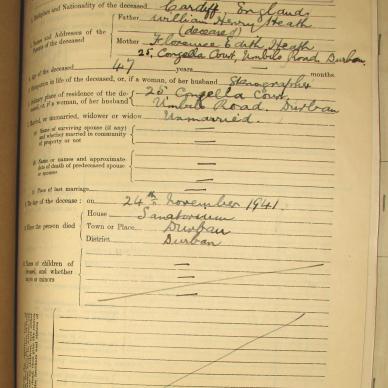 Birthplace and Nationality of the deceased Cardiff, England
Names and Addresses of the parents of the deceased
Father William Henry Heath
(deceased)
Mother Florence Edith Heath
25, Congella Court, Umbilo Road, Durban.
Age of the deceased 47 years months.
Occupation in life of the deceased, or, if a woman, of her husband Stenographer
Ordinary place of residence of the deceased, or, if a woman, of her husband
25 Congella Court
Umbilo Road, Durban
Married, or unmarried, widower or widow Unmarried.
(a) Name of surviving spouse (if any) and whether married in community of property or not
(b) Name or names and approximate date of death of predeceased spouse or spouses
(c) Place of last marriage
The day of the decease: on 24th November 1941.
Where the person died
House Sanatorium
Town or Place Durban
District Durban
Names of children of deceased, and whether majors or minors